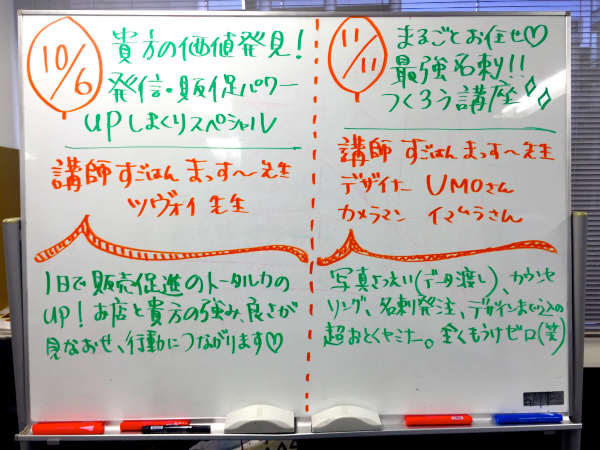 10/6
貴方の価値発見!
発信・販促パワー
upしまくりスペシャル
講師 すごはん まっす〜先生
ツヴァイ 先生
1日で販売促進のトータル力の
UP! お店と貴方の強み、良さが
見なおせ、行動につながります♡
11/11
まるごとお任せ♡
最強名刺!!
つくろう講座
講師 すごはん まっす〜先生
デザイナー UMOさん
カメラマン イマムラさん
写真さつえい(データ渡し)、カウンセ
リング、名刺発注、デザインまで込みの
超おとくセミナー。全くもうけゼロ(笑)